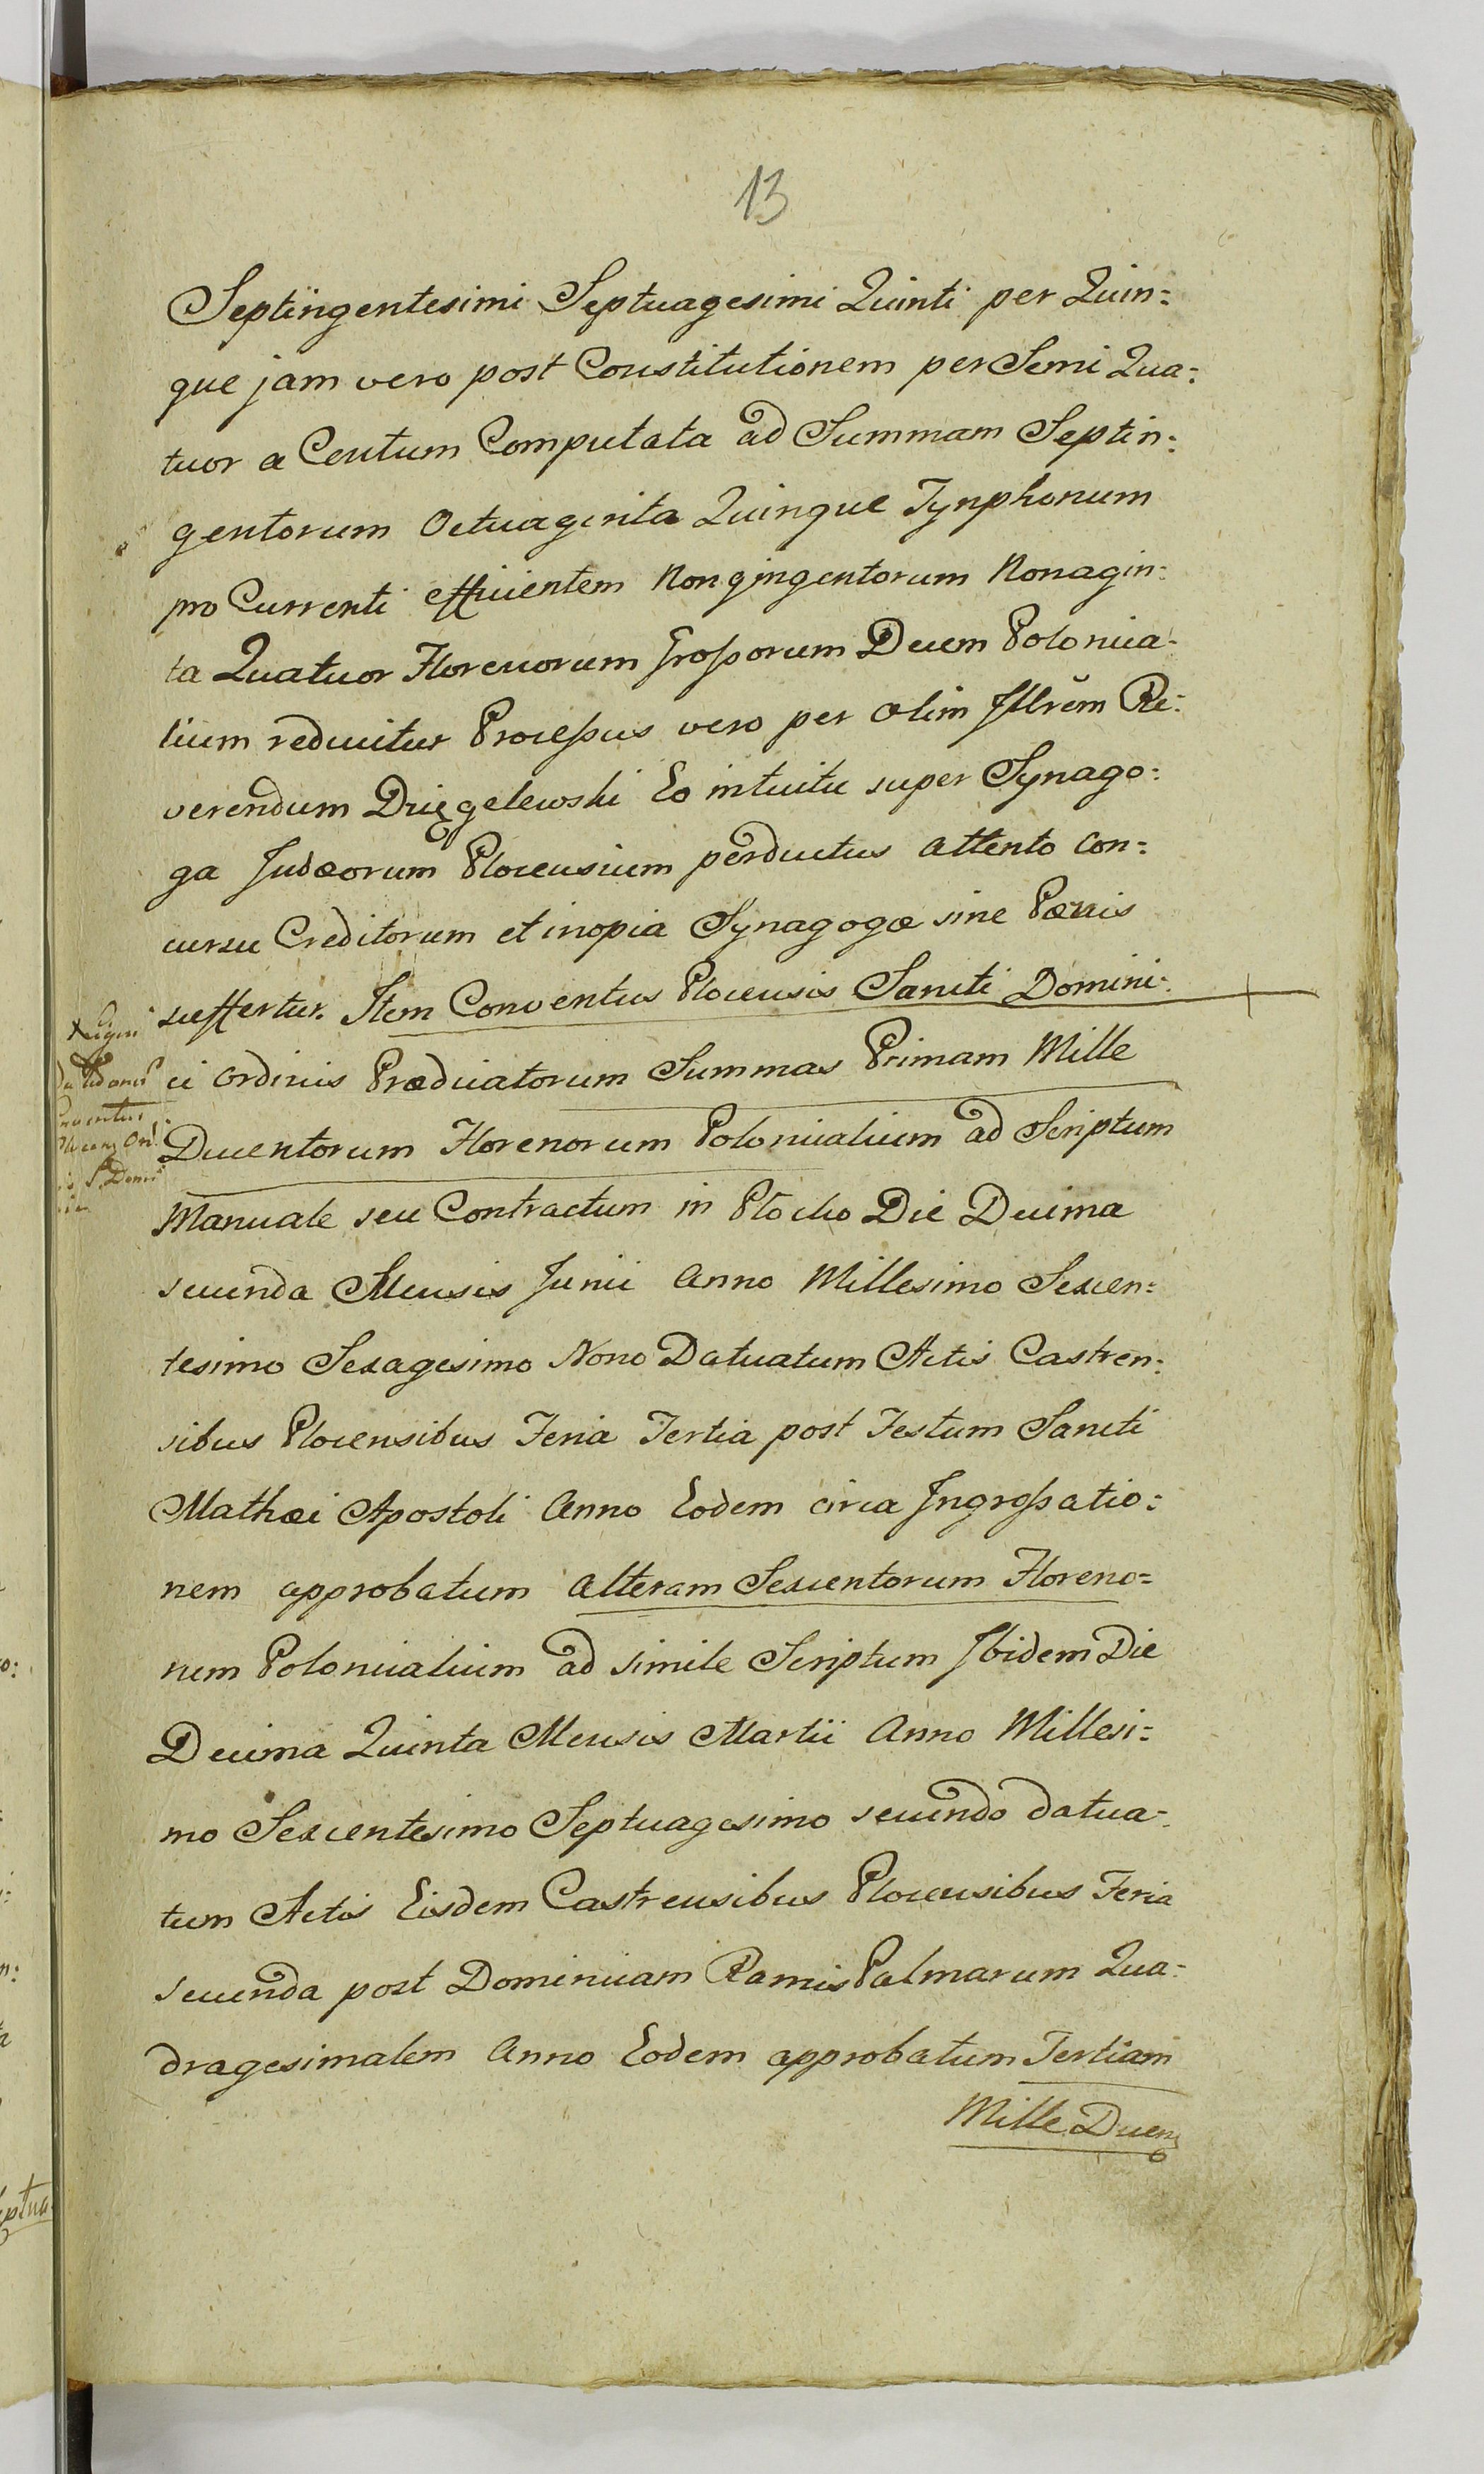 13
Septingentesimi Septuagesimi Quinti per Quin:
que jam vero post Constitutionem per Semi Qua:
tuor a Centum Computata ad Summam Septin:
gentorum Octuaginta Quinque Tynphonum
pro Currenti efficientem Nongingentorum Nonagin:
ta Quatuor Florenorum Grossorum Decem Polonica-
lium reducitur Processus vero per olim Jllrem Re:
verendum Dzięgelewski Eo intuitu super Synago:
ga Judæorum Plocensium perductus attento Con:
cursu Creditorum et inopia Synagogæ sine Pænis
suffertur. Item Conventus Plocensis Sancti Domini-
ci Ordinis Prædicatorum Summas Primam Mille
Ducentorum Florenorum Polonicalium ad Scriptum
Manuale seu Contractum in Plocko Die Decima
secunda Mensis Junii Anno Millesimo Sexcen:
tesimo Sexagesimo Nono Datuatum Actis Castren:
sibus Plocensibus Feria Tertia post Festum Sancti
Mathæi Apostoli Anno Eodem circa Jngrossatio:
nem approbatum alteram Sexcentorum Floreno=
rum Polonicalium ad simile Scriptum Jbidem Die
Decima Quinta Mensis Martii Anno Millesi:
mo Sexcentesimo Septuagesimo secundo datua-
tum Actis Eisdem Castrensibus Plocensibus Feria
secunda post Dominicam Ramis Palmarum Qua:
dragesimalem Anno Eodem approbatum Tertiam
Mille Ducen